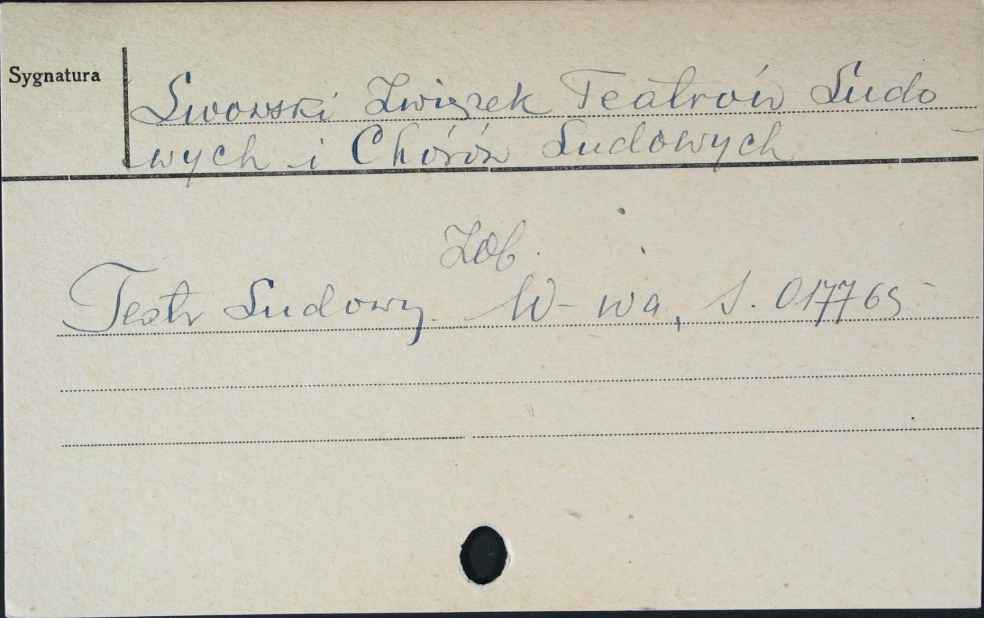 Sygnatura
Lwowski Związek Teatrów Ludo
wych i Chórów Ludowych
Zob.
Teatr Ludowy. W-wa, S. 017765